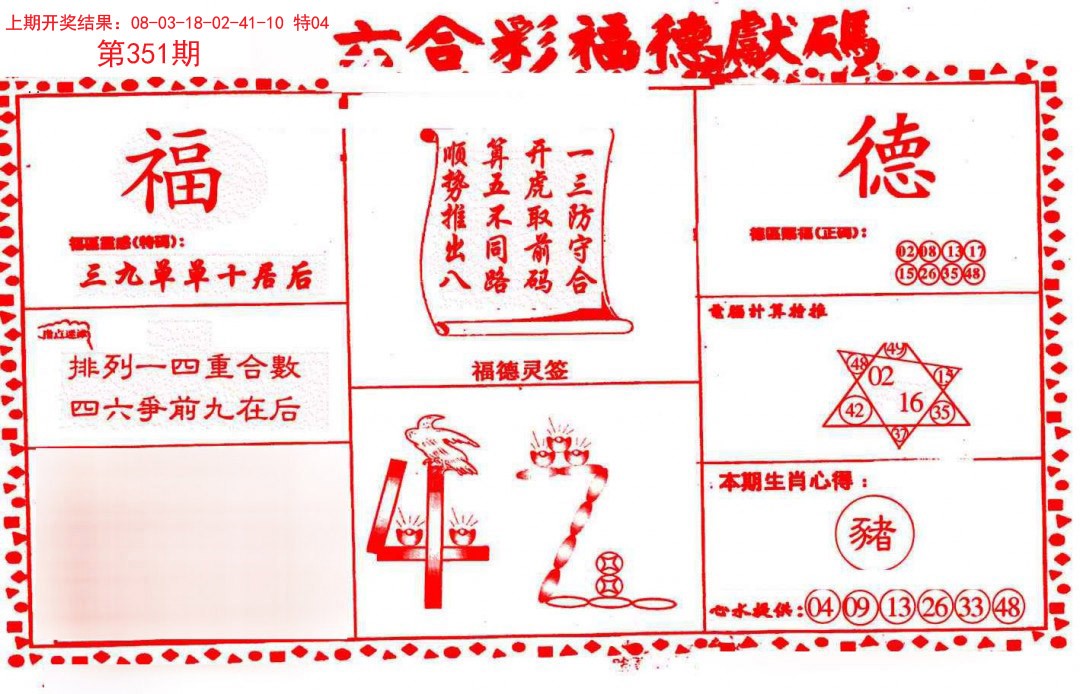 上期开奖结果：08-03-18-02-41-10 特04
第351期
六合彩福德獻碼
福
福區靈感(特碼)：
三九单单十居后
排列一四重合數
四六爭前九在后
一三防守合
开虎取前码
算五不同路
顺势推出八
福德灵签
42
德
德區賜福(正碼)：
02 08 13 17
15 26 35 48
電腦計算拾推
49
48 02 15
42 16 35
37
本期生肖心得：
豬
心水提供：04 09 13 26 33 48